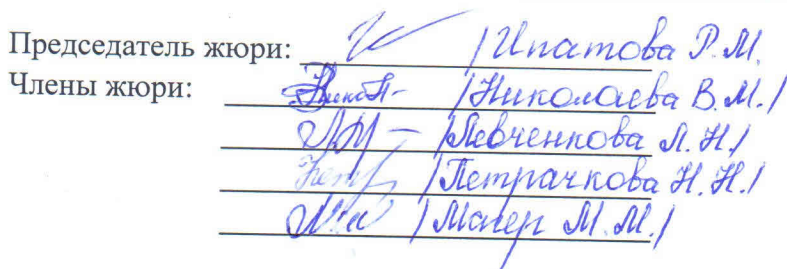 Председатель жюри: /Ипатова Р.М.
Члены жюри: /Николаева В.М./
/Левченкова Л.Н./
/Петрачкова Н.Н./
/Магер М.М./